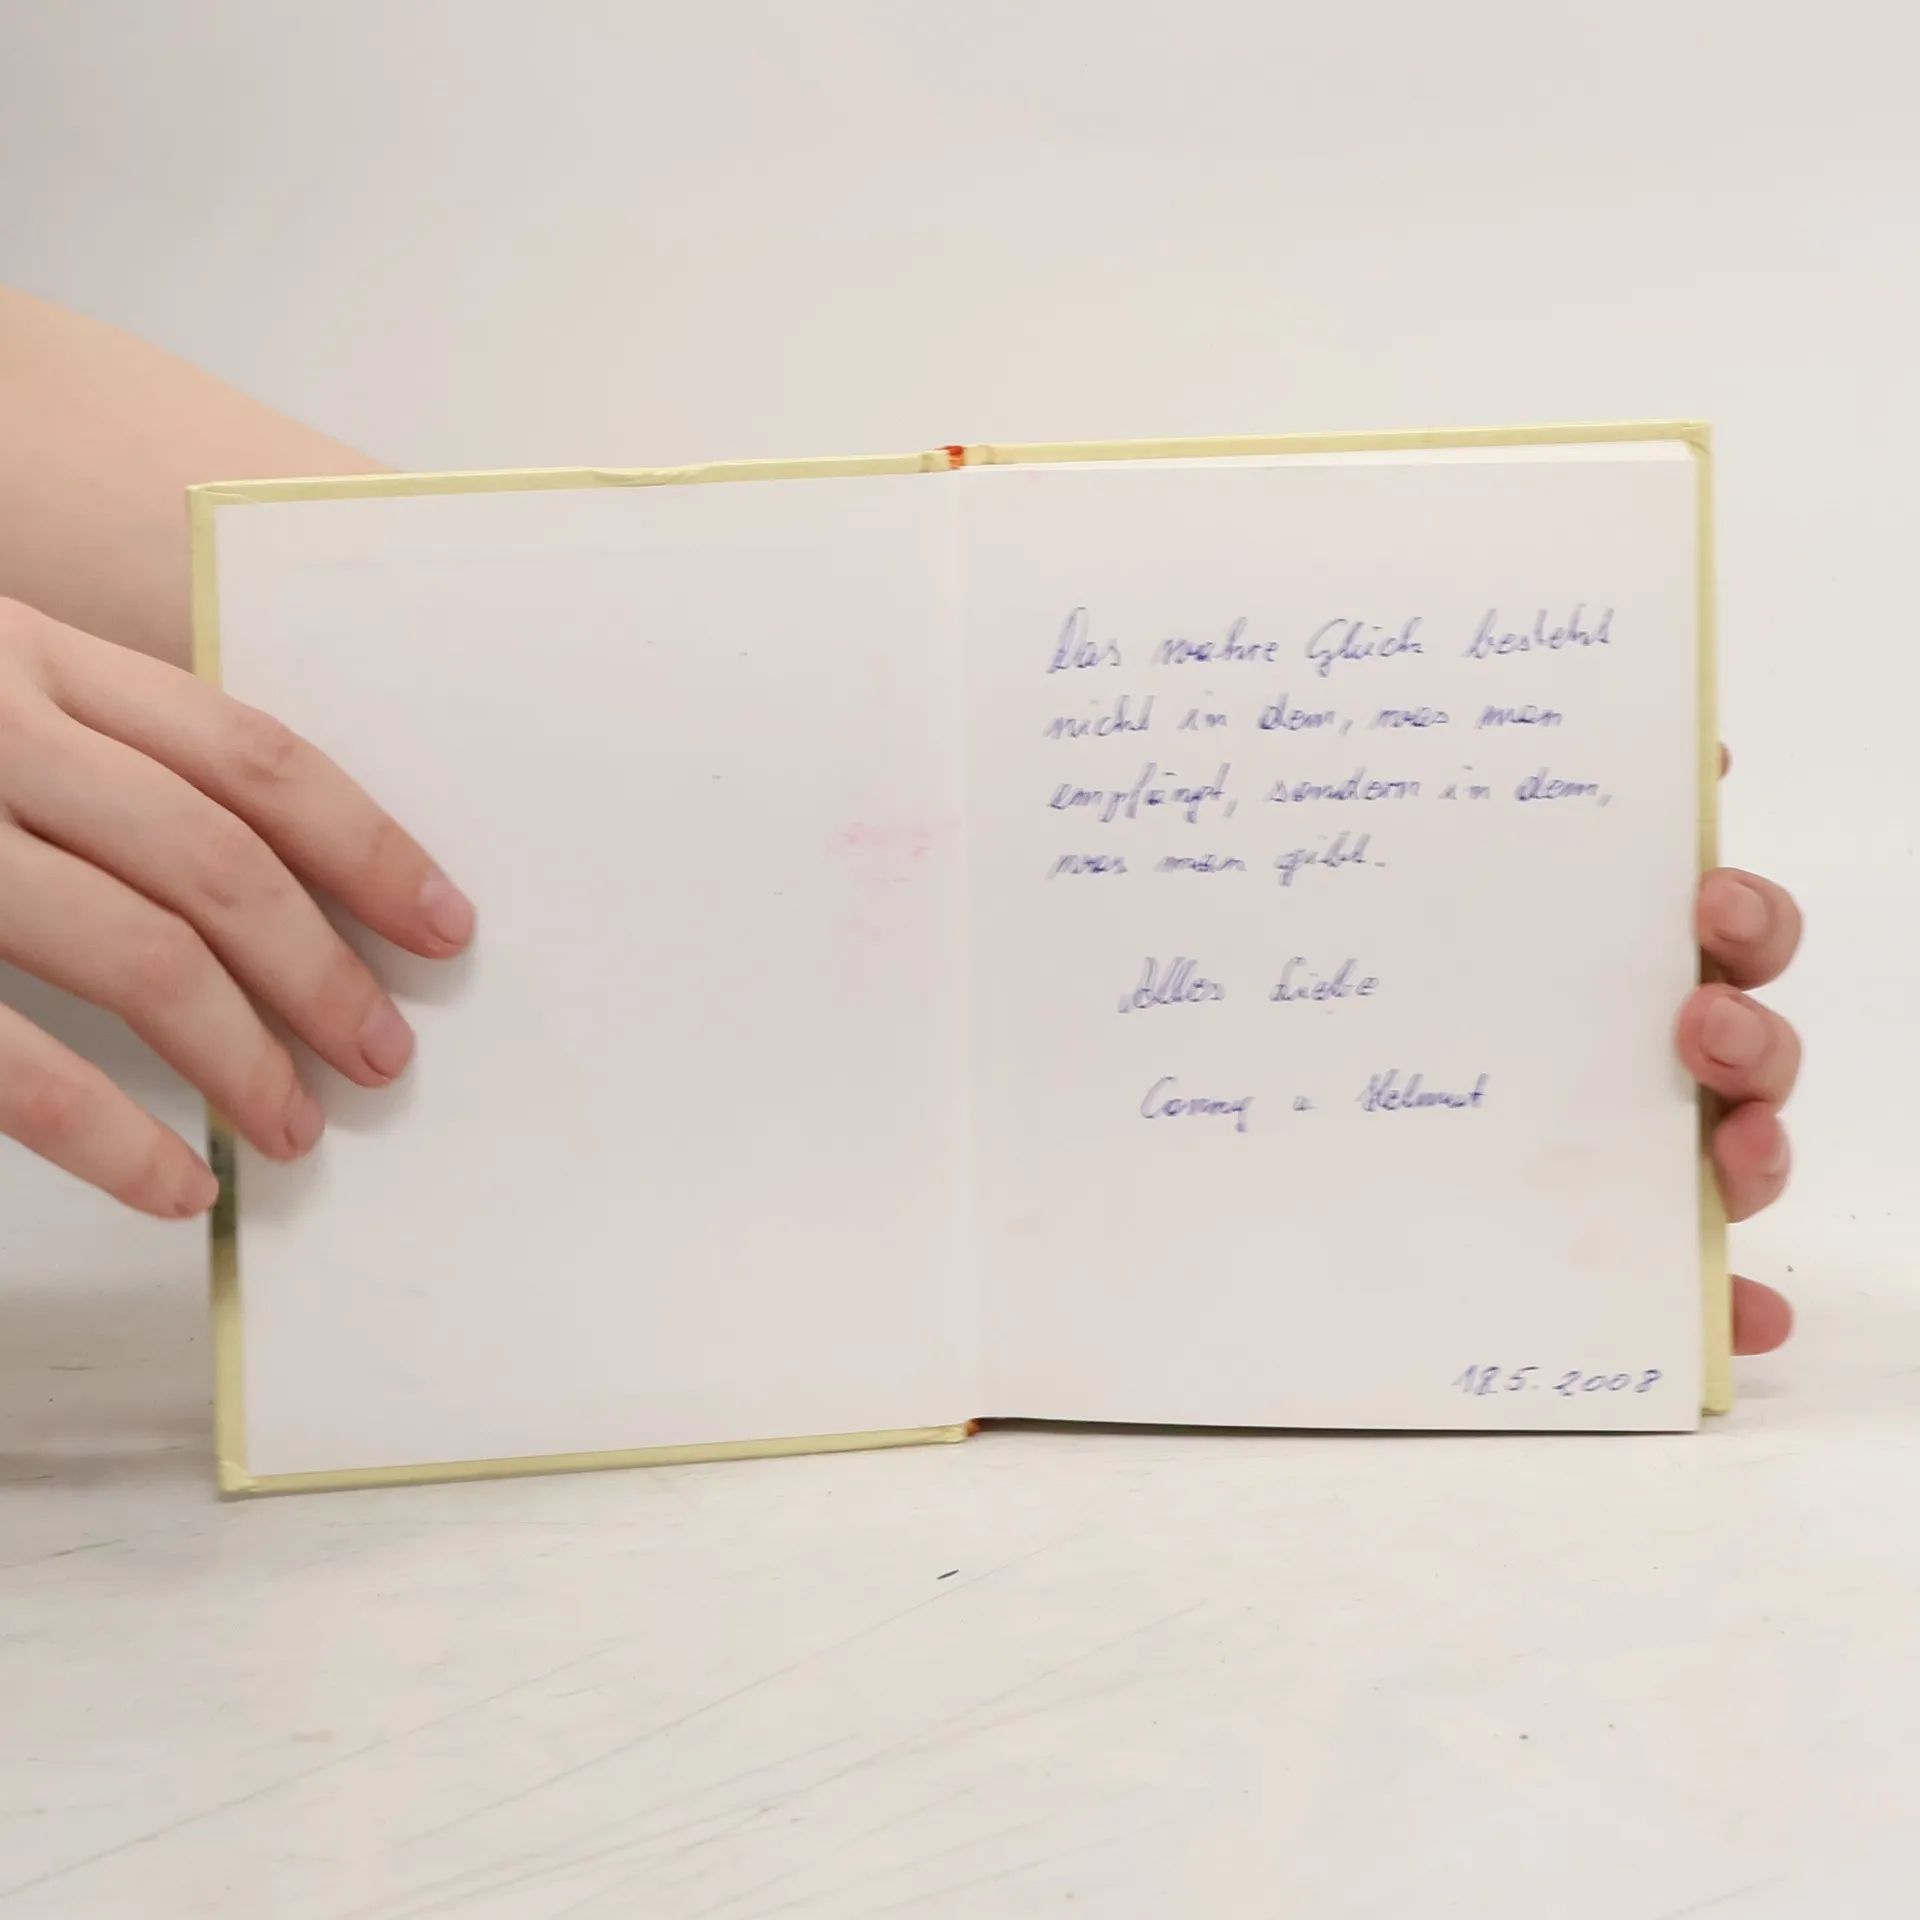 Das wahre Glück besteht
nicht in dem, was man
empfängt, sondern in dem,
was man gibt.
Alles Liebe
Conny u Helmut
18.5.2008